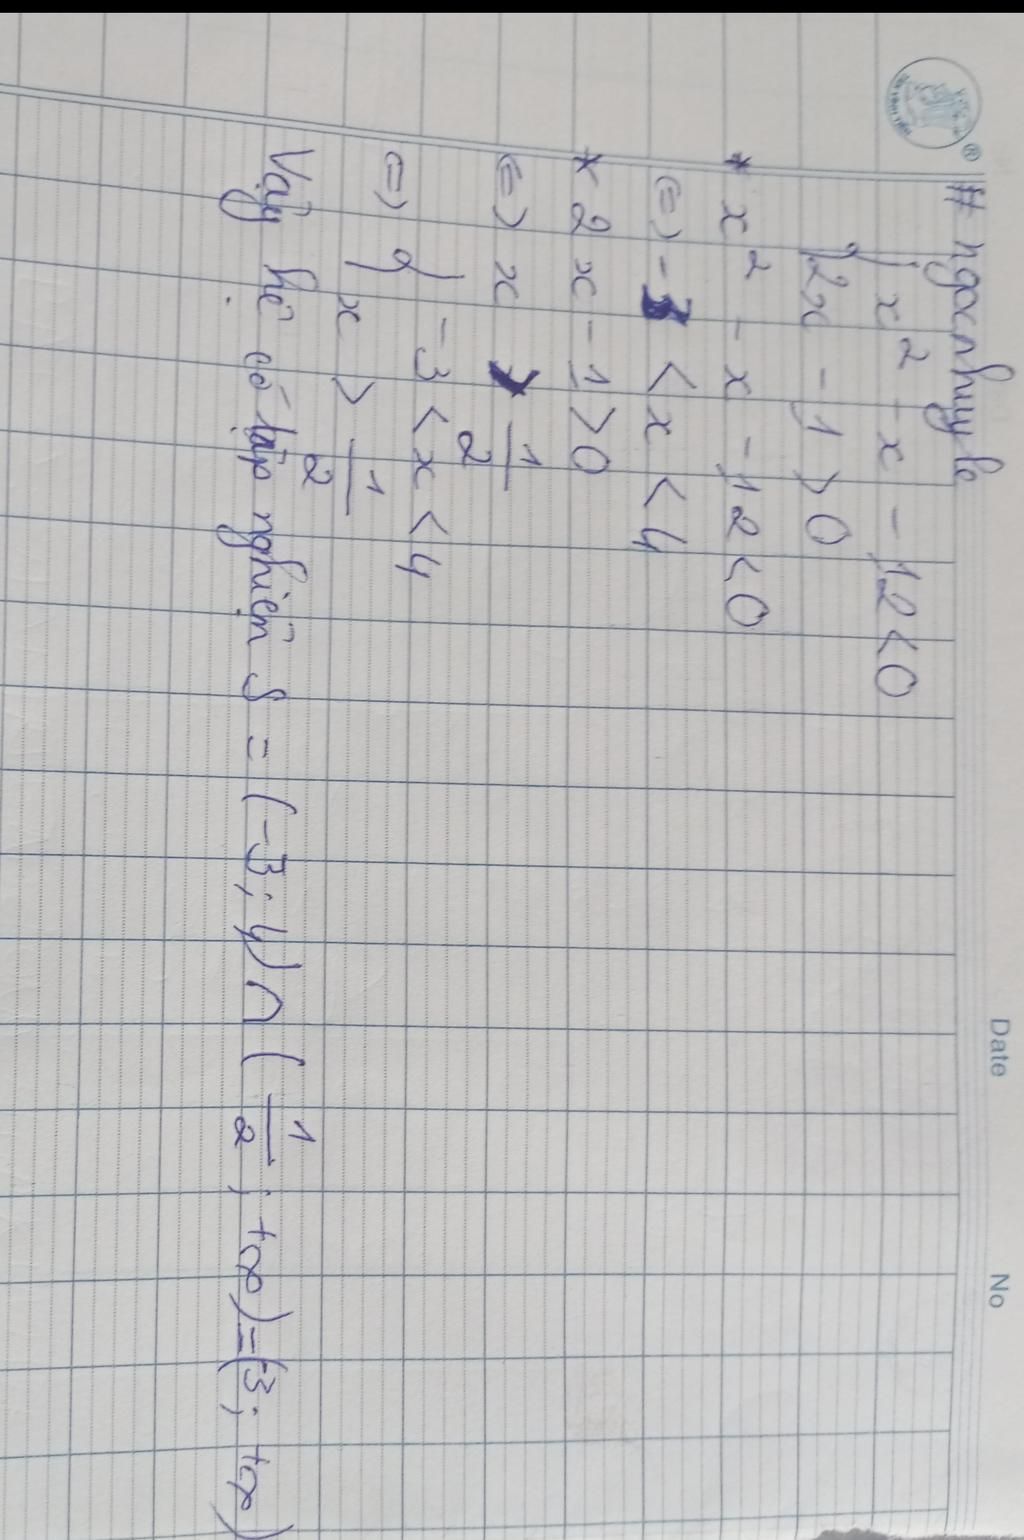 Date No
# ngocnhuyle
{ x² - x - 12 < 0
2x - 1 > 0
* x² - x - 12 < 0
(=) -3 < x < 4
* 2x - 1 > 0
(=) x > 1/2
(=) { -3 < x < 4
x > 1/2
Vậy hệ có tập nghiệm S = (-3; 4) ∩ (1/2; +∞) = (-3; +∞)